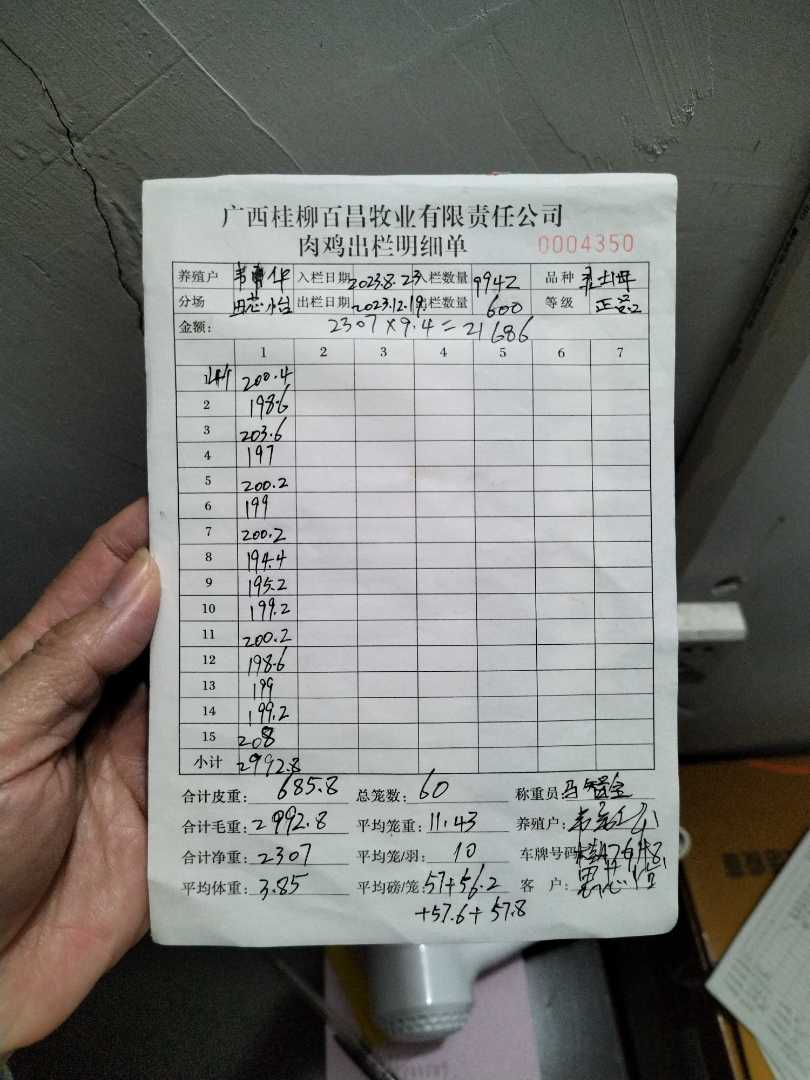 广西桂柳百昌牧业有限责任公司
肉鸡出栏明细单 0004350
养殖户 华 入栏日期 2023.8.23 入栏数量 9942 品种 土母
分场 出栏日期 2023.12.19 出栏数量 600 等级 正品
金额: 2307×9.4=21686
1 2 3 4 5 6 7
200.4
2 198.6
3 203.6
4 197
5 200.2
6 199
7 200.2
8 194.4
9 195.2
10 199.2
11 200.2
12 198.6
13 199
14 199.2
15 208
小计 2992.8
合计皮重: 685.8 总笼数: 60 称重员: 马
合计毛重: 2992.8 平均笼重: 11.43 养殖户:
合计净重: 2307 平均笼/羽: 10 车牌号码
平均体重: 3.85 平均磅/笼: 57+56.2 客 户:
+57.6+57.8